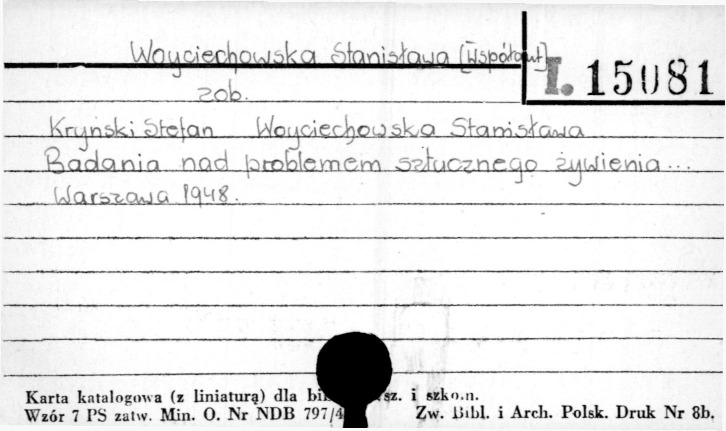 Woyciechowska Stanisława [Współaut]
I. 15081
zob.
Kryński Stefan Woyciechowska Stanisława
Badania nad problemem sztucznego żywienia...
Warszawa 1948.
Karta katalogowa (z liniaturą) dla sz. i szkoln.
Wzór 7 PS zatw. Min. O. Nr NDB 797/4 Zw. Bibl. i Arch. Polsk. Druk Nr 8b.